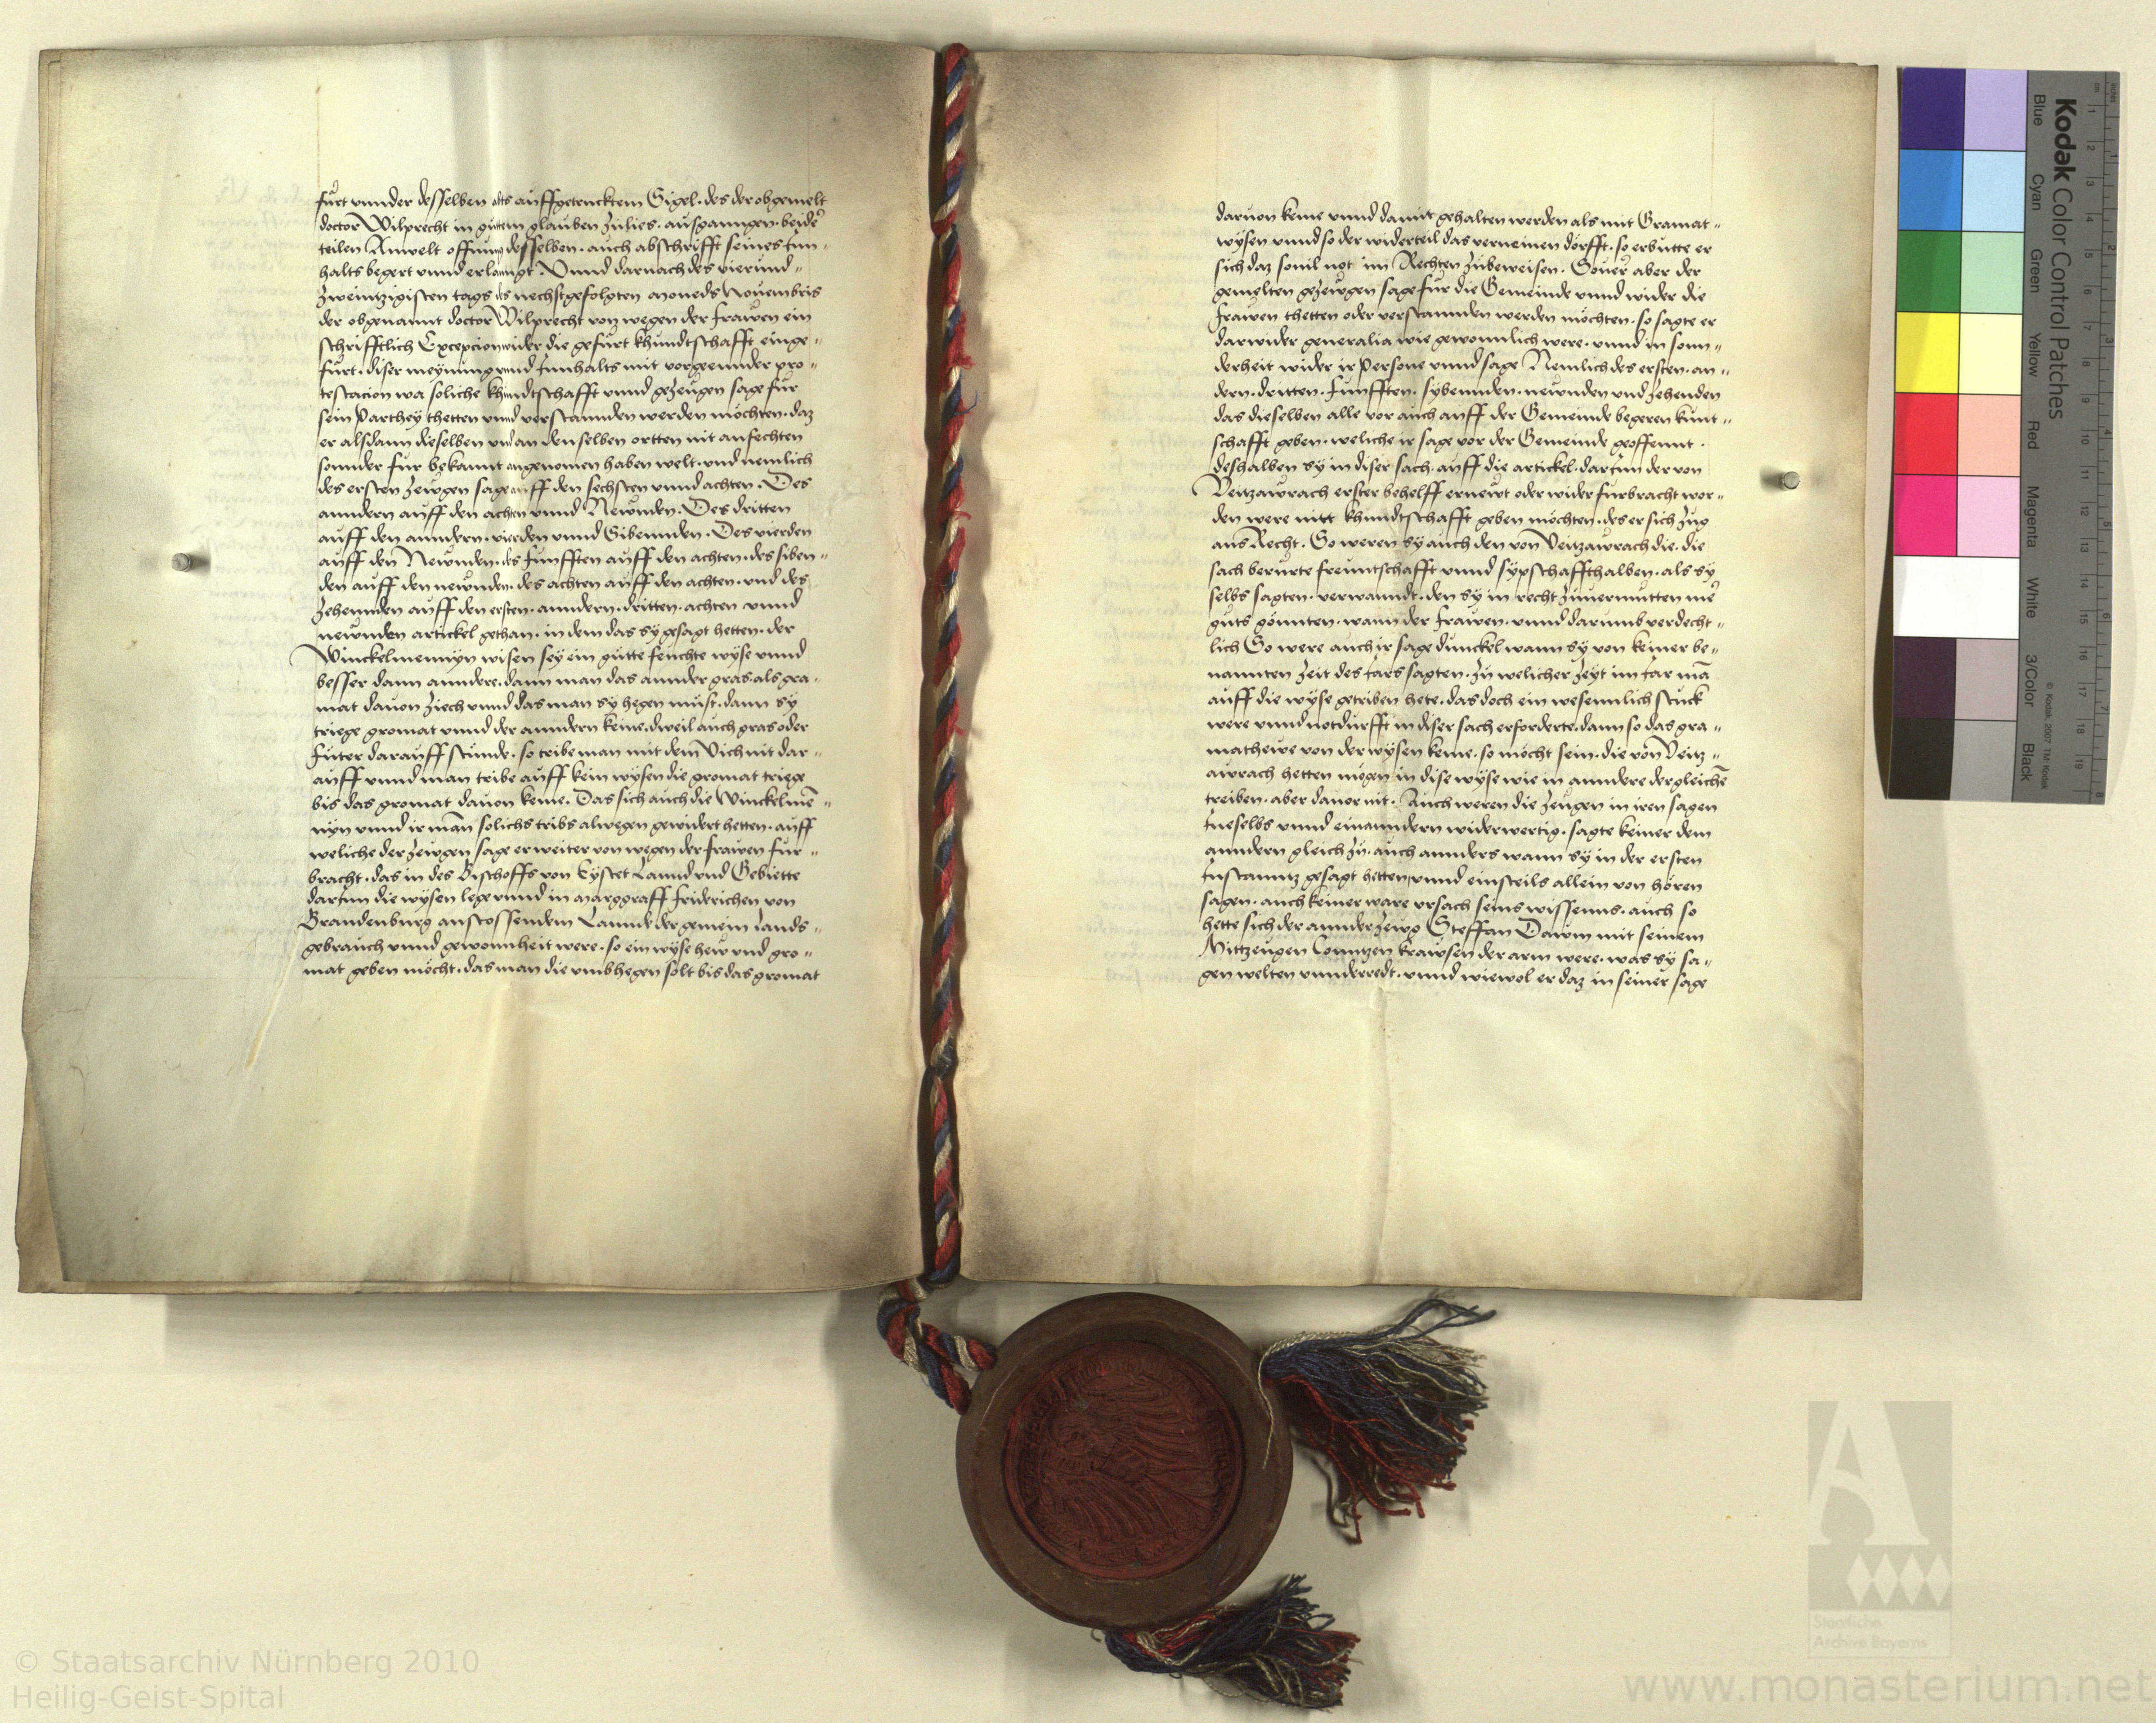 fürt vnnder desselben abts auffgetrucktem Sigel. des der obgemelt
doctor Wilprecht in guttem glauben zulies. ausganngen. beider
teilen Anwelt offnung desselben. auch abschrifft seines Inn-
halts begert vnnd erlanngt. Vnnd darnach des vierund-
zweintzigisten tags des nechstgefolgten moneds Nouembris
der obgenannt doctor Wilprecht von wegen der frawen ein
schrifftlich Excepcion wider die gefürt khundtschafft einge-
fürt. diser meynung vnnd Innhalts mit vorgeennder pro-
testacion wa soliche khundtschafft vnnd gezeugen sage für
sein Parthey thetten vnnd verstannden werden möchten. daz
er alsdann dieselben vnd an denselben ortten nit anfechten
sonnder für bekannt angenomen haben welt. vnd nemlich
des ersten zewgen sage auff den sechsten vnnd achten. Des
anndern auff den achten vnnd Newnden. Des dritten
auff den anndern. vierden vnnd Sibennden. Des vierden
auff den Newnden. des funfften auff den achten. des siben-
den auff den newnden. des achten auff den achten. vnd des
zehennden auff den ersten. anndern. dritten. achten vnnd
newnden artickel gethan. in dem das sy gesagt hetten. der
Winckelmennyn wisen sey ein gutte feuchte wyse vnnd
besser dann anndere. dann man das annder gras als gra-
mat dauon ziech vnnd das man sy hegen müst. dann sy
triege gromat vnnd der anndern keine. dweil auch gras oder
futer darauff stünde. so tribe man mit dem Vich nit dar-
auff vnnd man tribe auff kein wysen die gromat triege
bis das gromat dauon keme. Das sich auch die Winckelmē-
nyn vnnd ir man solichs tribs alwegen gewidert hetten. auff
weliche der zewgen sage er weiter von wegen der frawen für-
bracht. das in des Bischoffs von Eystet Lannd vnd Gebiette
darInn die wysen lege vnnd in marggraff friderichen von
Brandenburg anstossendem Lannde der gemein lands-
gebrauch vnnd gewonnheit were. so ein wyse hew vnd gro-
mat geben möcht. das man die vmbhegen solt bis das gromat
daruon keme vnnd damit gehalten werden als mit Gramat-
wysen vnnd so der widerteil das verneinen dörfft. so erbutte er
sich daz souil not im Rechten zubeweisen. Souer aber der
gemelten gezewgen sage für die Gemeinde vnnd wider die
frawen thetten oder verstannden werden möchten. so sagte er
darwider generalia wie gewonnlich were. vnnd in sonn-
derheit wider ir Persone vnnd sage Nemlich des ersten. an-
dern. dritten. funfften. sybennden. newnden vnd zehenden
das dieselben alle vor auch auff der Gemeinde begeren kunt-
schafft geben. weliche ir sage vor der Gemeinde geoffennt.
deshalben sy in diser sach. auff die artickel. darInn der von
Veitzawrach erster behelff ernewt oder wider furbracht wor-
den were nitt khundtschafft geben möchten. des er sich zug
ans Recht. So weren sy auch den von Veitzawrach die. die
sach berurte freuntschafft vnnd sypschaffthalben. als sy
selbs sagten. verwanndt. den sy in recht zuuermutten mer
guts gönnten. wann der frawen. vnnd darumb verdecht-
lich So were auch ir sage dunckel wann sy von keiner be-
nannten zeit des Iars sagten. zu welicher zeyt im Iar mā
auff die wyse getriben hete. das doch ein wesennlich stuck
were vnnd notdürfft in diser sach erforderte. dann so das gra-
mathewe von der wysen keme. so möcht sein. die von Veitz-
awrach hetten mögen in dise wyse wie in anndere dergleichē
treiben. aber dauor nit. Auch weren die zeugen in iren sagen
Ine selbs vnnd einanndern widerwertig. sagte keiner dem
anndern gleich zu. auch annders wann sy in der ersten
Instanntz gesagt hetten vnnd einsteils allein von hören
sagen. auch keiner ware vrsach seins wissenns. auch so
hette sich der annder zewg Steffan Dawm mit seinem
Mittzeugen Conntzen krawsen der arm were. was sy sa-
gen welten vnnderredt. vnnd wiewol er daz in seiner sage
Kodak Color Control Patches
Blue Cyan Green Yellow Red Magenta White 3/Color Black
© Kodak, 2007 TM: Kodak
© Staatsarchiv Nürnberg 2010
Heilig-Geist-Spital
Staatliche
Archive Bayerns
www.monasterium.net